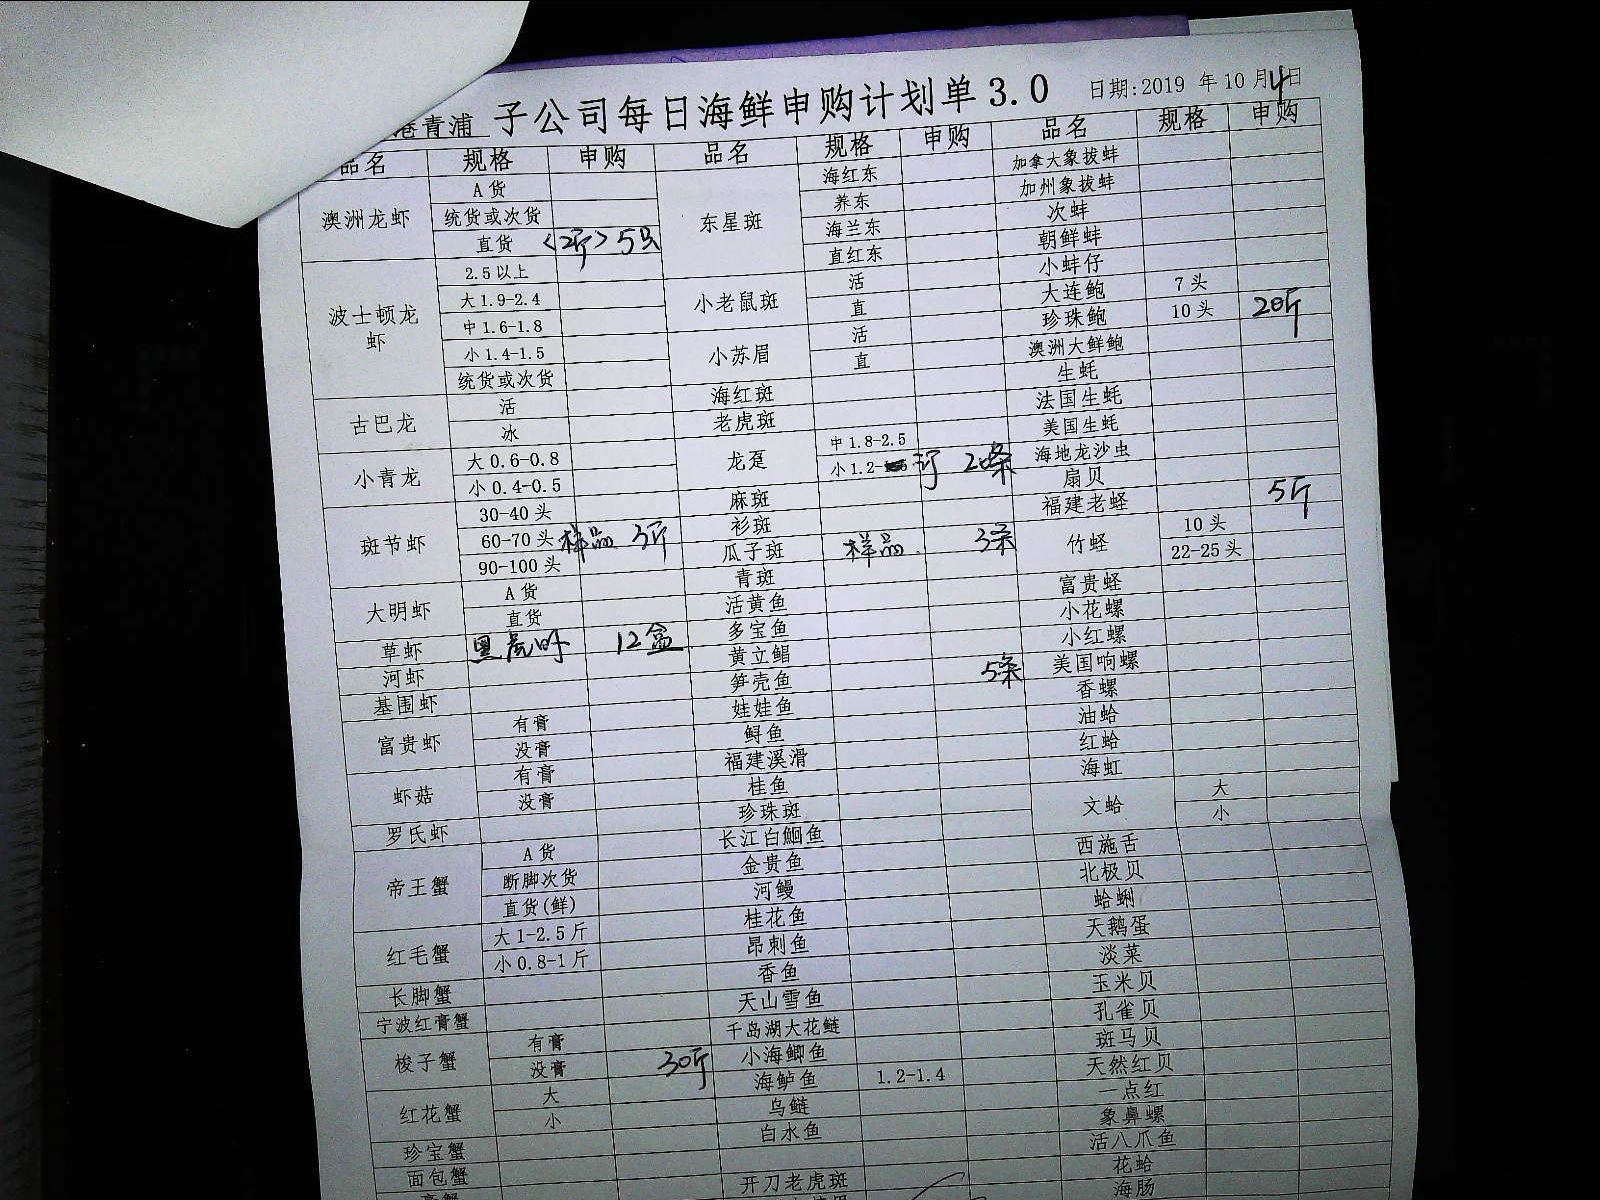 港青浦 子公司每日海鲜申购计划单3.0 日期:2019 年 10 月 4 日
品名 规格 申购 品名 规格 申购 品名 规格 申购
澳洲龙虾 A货
统货或次货
直货 <2斤> 5只
波士顿龙虾 2.5以上
大1.9-2.4
中1.6-1.8
小1.4-1.5
统货或次货
古巴龙 活
冰
小青龙 大0.6-0.8
小0.4-0.5
斑节虾 30-40头
60-70头 样品 3斤
90-100头
大明虾 A货
直货
草虾 黑虎虾 12盒
河虾
基围虾
富贵虾 有膏
没膏
虾菇 有膏
没膏
罗氏虾
帝王蟹 A货
断脚次货
直货(鲜)
红毛蟹 大1-2.5斤
小0.8-1斤
长脚蟹
宁波红膏蟹
梭子蟹 有膏
没膏 30斤
红花蟹 大
小
珍宝蟹
面包蟹
东星斑 海红东
养东
海兰东
直红东
小老鼠斑 活
直
小苏眉 活
直
海红斑
老虎斑
龙趸 中1.8-2.5
小1.2- 20条
麻斑
杉斑
瓜子斑 样品 3条
青斑
活黄鱼
多宝鱼
黄立鲳
笋壳鱼 5条
娃娃鱼
鲟鱼
福建溪滑
桂鱼
珍珠斑
长江白鮰鱼
金贵鱼
河鳗
桂花鱼
昂刺鱼
香鱼
天山雪鱼
千岛湖大花鲢
小海鲫鱼
海鲈鱼 1.2-1.4
乌鲢
白水鱼
开刀老虎斑
加拿大象拔蚌
加州象拔蚌
次蚌
朝鲜蚌
小蚌仔
大连鲍 7头
珍珠鲍 10头 20斤
澳洲大鲜鲍
生蚝
法国生蚝
美国生蚝
海地龙沙虫
扇贝
福建老蛏 5斤
竹蛏 10头
22-25头
富贵蛏
小花螺
小红螺
美国响螺
香螺
油蛤
红蛤
海虹
文蛤 大
小
西施舌
北极贝
蛤蜊
天鹅蛋
淡菜
玉米贝
孔雀贝
斑马贝
天然红贝
一点红
象鼻螺
活八爪鱼
花蛤
海肠